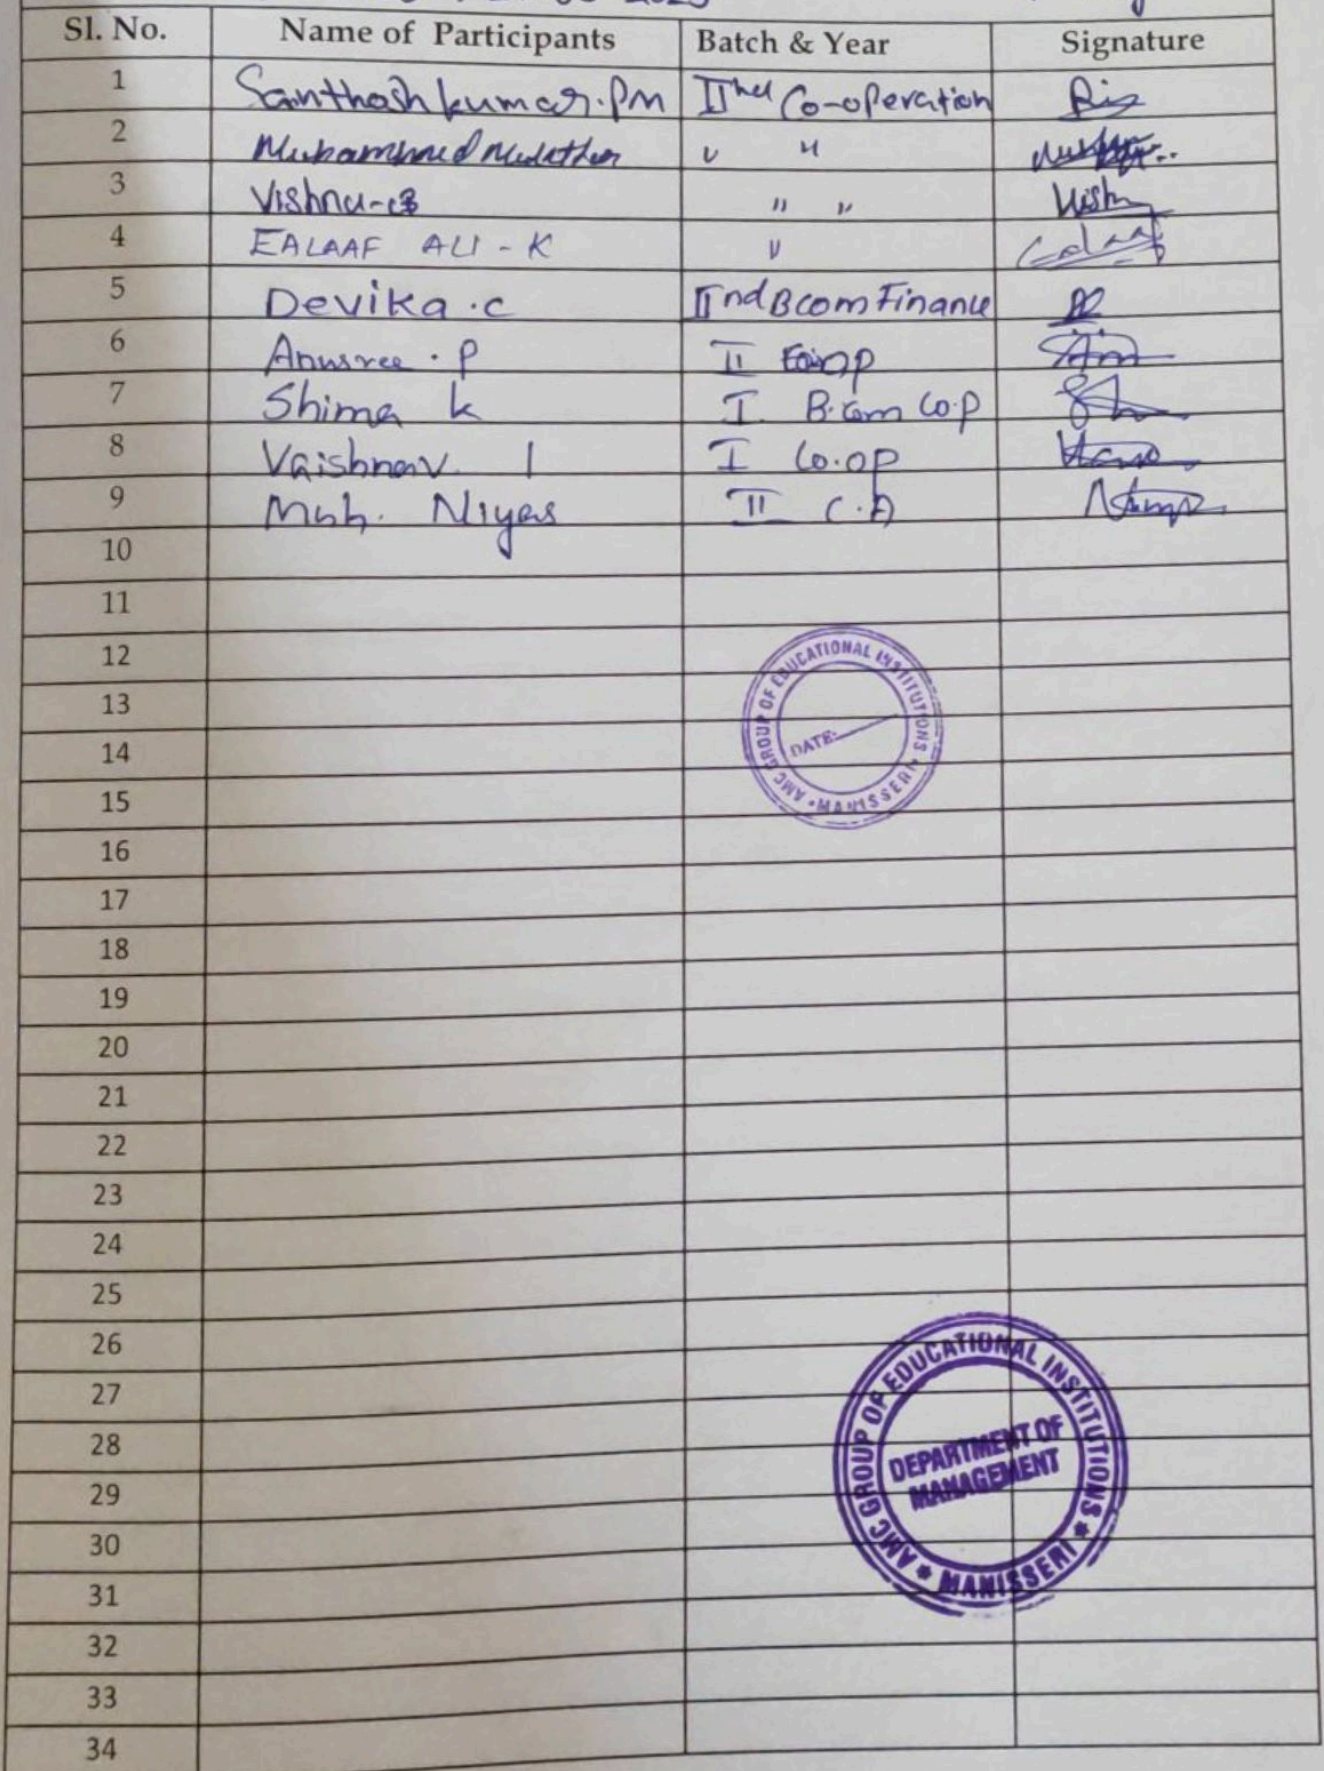 2023
Sl. No. Name of Participants Batch & Year Signature
1 Santhosh kumar. PM IInd Co-operation
2 Muhammed " "
3 Vishnu " "
4 EALAAF ALI - K " Ealaaf
5 Devika . C IInd Bcom Finance
6 Anusree . P II
7 Shima K I B.com Co.p
8 Vaishnav. I Co.op
9 Muh. Niyas II C.A
10
11
12
13
14
15
16
17
18
19
20
21
22
23
24
25
26
27
28
29
30
31
32
33
34
AMC GROUP OF EDUCATIONAL INSTITUTIONS
MANISSERI
DATE:
AMC GROUP OF EDUCATIONAL INSTITUTIONS
DEPARTMENT OF
MANAGEMENT
MANISSERI